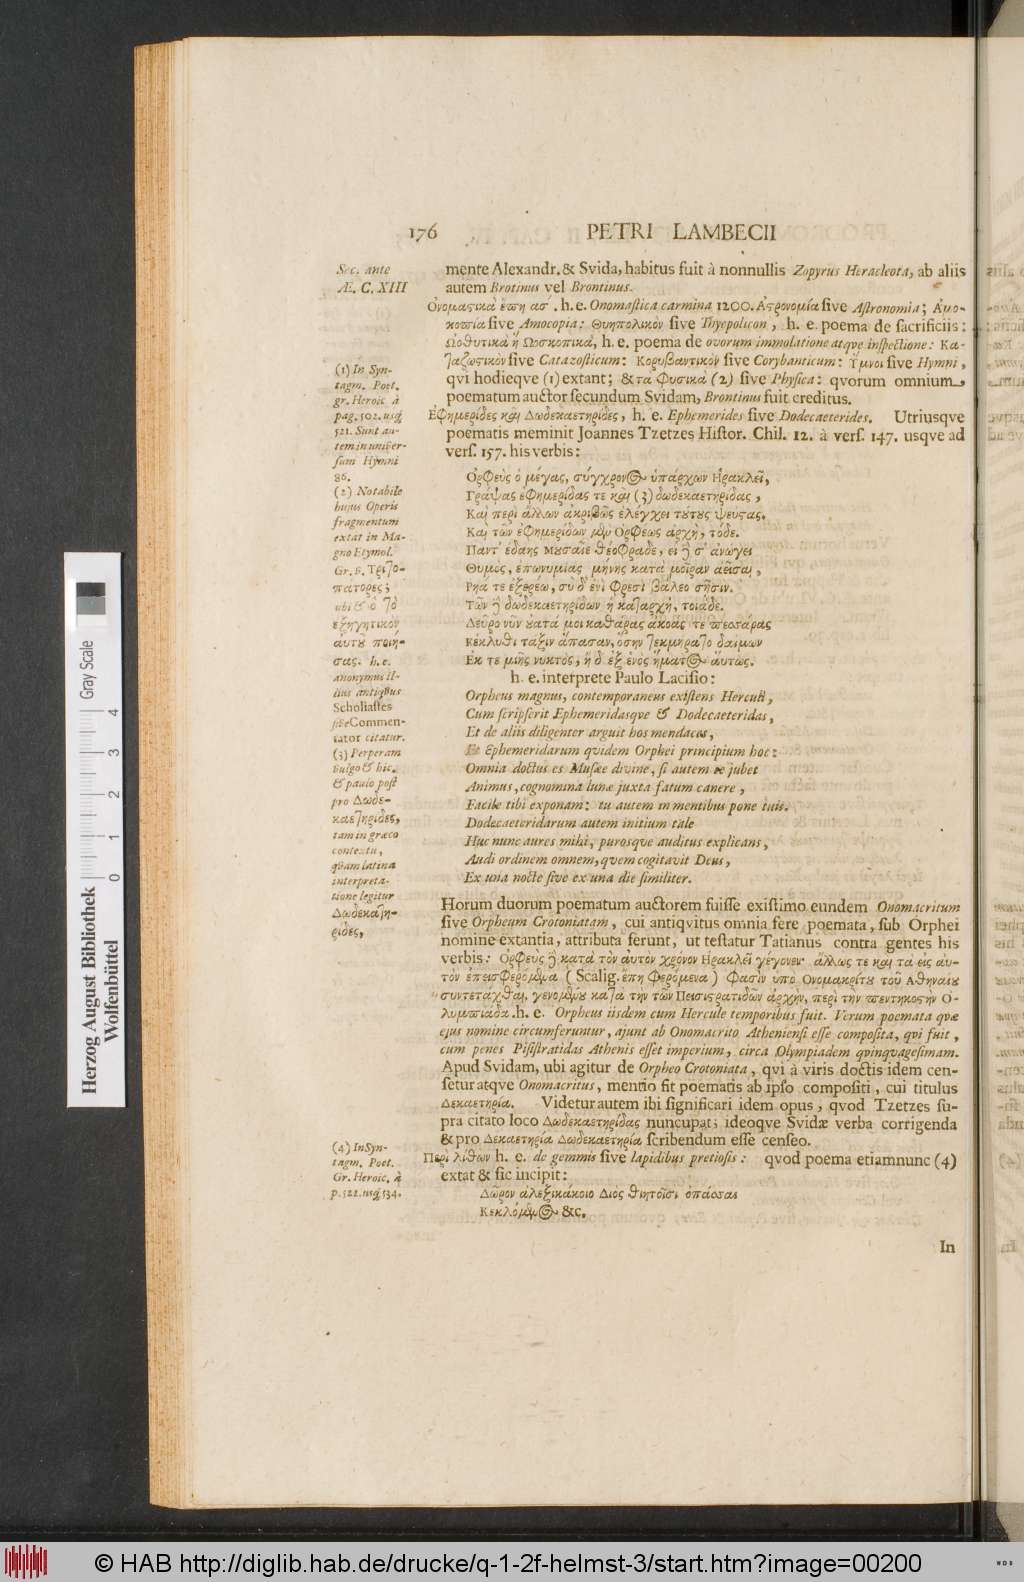 176 PETRI LAMBECII
Sec. ante
Æ. C. XIII
mente Alexandr. & Svida, habitus fuit à nonnullis Zopyrus Heracleota, ab aliis
autem Brotinus vel Brontinus.
Ονομαστικὰ ἔπη ας΄. h. e. Onomastica carmina 1200. Αστρονομία sive Astronomia; Αμο-
κοπία sive Amocopia: Θυηπολικὸν sive Thyepolicon, h. e. poema de sacrificiis:
Ωοθυτικὰ ἢ Ωοσκοπικά, h. e. poema de ovorum immolatione atqve inspectione: Κα-
ταζωστικὸν sive Catazosticum: Κορυβαντικὸν sive Corybanticum: Υμνοι sive Hymni,
qvi hodieqve (1) extant; & τα Φυσικά (2) sive Physica: qvorum omnium
poematum auctor secundum Svidam, Brontinus fuit creditus.
Ἐφημερίδες καὶ Δωδεκαετηρίδες, h. e. Ephemerides sive Dodecaeterides. Utriusqve
poematis meminit Joannes Tzetzes Histor. Chil. 12. à vers. 147. usqve ad
vers. 157. his verbis:
Ορφεὺς ὁ μέγας, σύγχρονος ὑπάρχων Ηρακλεῖ,
Γράψας ἐφημερίδας τε καὶ (3) δωδεκαετηρίδας,
Καὶ περὶ ἄλλων ἀκριβῶς ἐλέγχει τούτους ψεύστας.
Καὶ τῶν ἐφημερίδων μὲν Ορφέως ἀρχὴ, τόδε.
Παντ᾽ ἐδάης Μουσαῖε θεόφραδε, εἰ δέ σ᾽ ἀνώγει
Θυμος, ἐπωνυμίας μήνης κατὰ μοῖραν ἀεῖσαι,
Ρηά τε ἐξερέω, σὺ δ᾽ ἐνὶ φρεσὶ βάλεο σῇσιν.
Τῶν δὲ δωδεκαετηρίδων ἡ καταρχή, τοιάδε.
Δεῦρο νῦν ουατά μοι καθάρας ἀκοάς τε πετάσας
Κέκλυθι τάξιν ἅπασαν, ὅσην τεκμήρατο δαίμων
Εκ τε μιῆς νυκτὸς, ἠδ᾽ ἐξ ἑνὸς ἤματος αὕτως.
h. e. interprete Paulo Lacisio:
Orpheus magnus, contemporaneus existens Herculi,
Cum scripserit Ephemeridasqve & Dodecaeteridas,
Et de aliis diligenter arguit hos mendaces,
Et Ephemeridarum qvidem Orphei principium hoc:
Omnia doctus es Musæe divine, si autem te jubet
Animus, cognomina lunæ juxta fatum canere,
Facile tibi exponam: tu autem in mentibus pone tuis.
Dodecaeteridarum autem initium tale
Huc nunc aures mihi, purosqve auditus explicans,
Audi ordinem omnem, qvem cogitavit Deus,
Ex una nocte sive ex una die similiter.
(1) In Syn-
tagm. Poet.
gr. Heroic. à
pag. 502. usq;
521. Sunt au-
tem in univer-
sum Hymni
86.
(2) Notabile
hujus Operis
fragmentum
extat in Ma-
gno Etymol.
Gr. s. Τριτο-
πάτορες;
ubi & ὁ τὸ
ἐξηγητικὸν
ἀυτοῦ ποιή-
σας. h. e.
anonymus il-
lius antiqvus
Scholiastes
sive Commen-
tator citatur.
(3) Perperam
vulgo & hic,
& paulo post
pro Δωδε-
καετηρίδες,
tam in græco
contextu,
qvam latina
interpreta-
tione legitur
Δωδεκατη-
ρίδες,
Horum duorum poematum auctorem fuisse existimo eundem Onomacritum
sive Orpheum Crotoniatam, cui antiqvitus omnia fere poemata, sub Orphei
nomine extantia, attributa ferunt, ut testatur Tatianus contra gentes his
verbis: Ορφεὺς δὲ κατὰ τὸν αὐτὸν χρόνον Ηρακλεῖ γέγονεν· ἄλλως τε καὶ τὰ εἰς αὐ-
τὸν ἐπεισφερόμενα (Scalig. ἔπη φερόμενα) φασὶν ὑπὸ Ονομακρίτου τοῦ Αθηναίου
συντετάχθαι, γενομένου κατὰ τὴν τῶν Πεισιστρατιδῶν ἀρχὴν, περὶ τὴν πεντηκοστὴν Ο-
λυμπιάδα. h. e. Orpheus iisdem cum Hercule temporibus fuit. Verum poemata qvæ
ejus nomine circumferuntur, ajunt ab Onomacrito Atheniensi esse composita, qvi fuit,
cum penes Pisistratidas Athenis esset imperium, circa Olympiadem qvinqvagesimam.
Apud Svidam, ubi agitur de Orpheo Crotoniata, qvi à viris doctis idem cen-
setur atqve Onomacritus, mentio fit poematis ab ipso compositi, cui titulus
Δεκαετηρία. Videtur autem ibi significari idem opus, qvod Tzetzes su-
pra citato loco Δωδεκαετηρίδας nuncupat; ideoqve Svidæ verba corrigenda
& pro Δεκαετηρία Δωδεκαετηρία scribendum esse censeo.
Περὶ λίθων h. e. de gemmis sive lapidibus pretiosis: qvod poema etiamnunc (4)
extat & sic incipit:
Δῶρον ἀλεξικάκοιο Διὸς θνητοῖσι ὀπάσσαι
Κεκλόμενος &c.
(4) In Syn-
tagm. Poet.
Gr. Heroic. à
p. 522. usq; 534.
In
Herzog August Bibliothek
Wolfenbüttel
Gray Scale
0 1 2 3 4
© HAB http://diglib.hab.de/drucke/q-1-2f-helmst-3/start.htm?image=00200